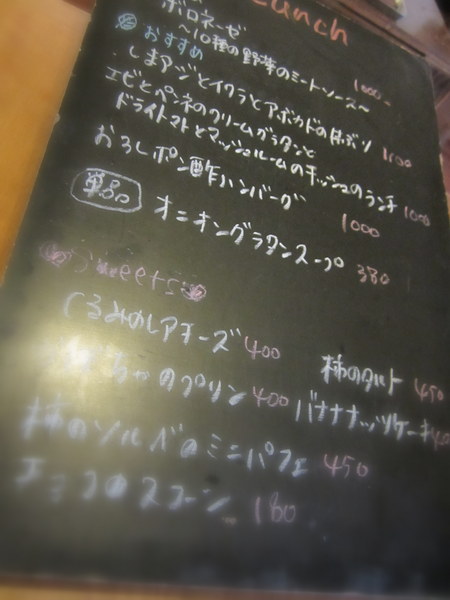 Lunch
ボロネーゼ
〜10種の野菜のミートソース〜 1000
おすすめ
しまアジとイクラとアボカドの丼ぶり 1100
エビとペンネのクリームグラタンと
ドライトマトとマッシュルームのキッシュのランチ
おろしポン酢ハンバーグ 1000
単品 オニオングラタンスープ 380
Sweets
くるみのレアチーズ 400
柿のタルト 450
のプリン 400
バナナナッツケーキ
柿のソルベのミニパフェ 450
スコーン 180